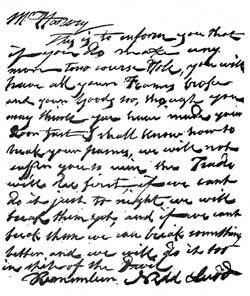 Mr H
This is to inform you that
if you do make any
more two course Hole, you will
have all your Frames broke
and your Goods too, though you
may think you have made your
Doors fast I shall know how to
break your frames, we will not
suffer you to win the Trade
will die first, if we cant
do it just to night, we will
break them yet, and if we cant
break them we can break something
better and we will do it too
in spite of the Devil
Remember Nedd Ludd